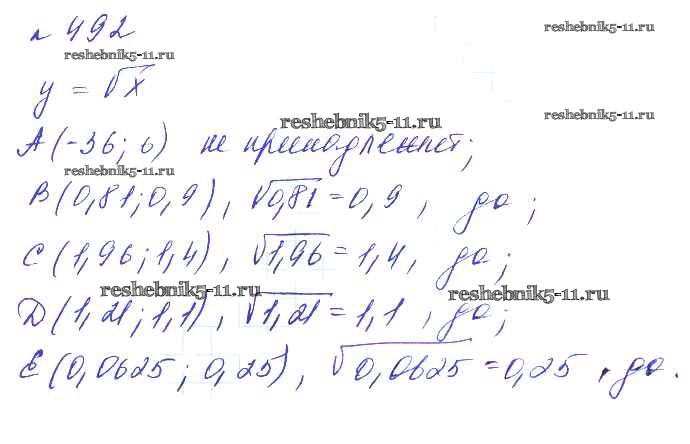 № 492
reshebnik5-11.ru
reshebnik5-11.ru
y = √x
reshebnik5-11.ru
reshebnik5-11.ru
A (-36; 6) не принадлежит;
reshebnik5-11.ru
B (0,81; 0,9), √0,81 = 0,9, да;
C (1,96; 1,4), √1,96 = 1,4, да;
reshebnik5-11.ru
reshebnik5-11.ru
D (1,21; 1,1), √1,21 = 1,1, да;
E (0,0625; 0,25), √0,0625 = 0,25, да.